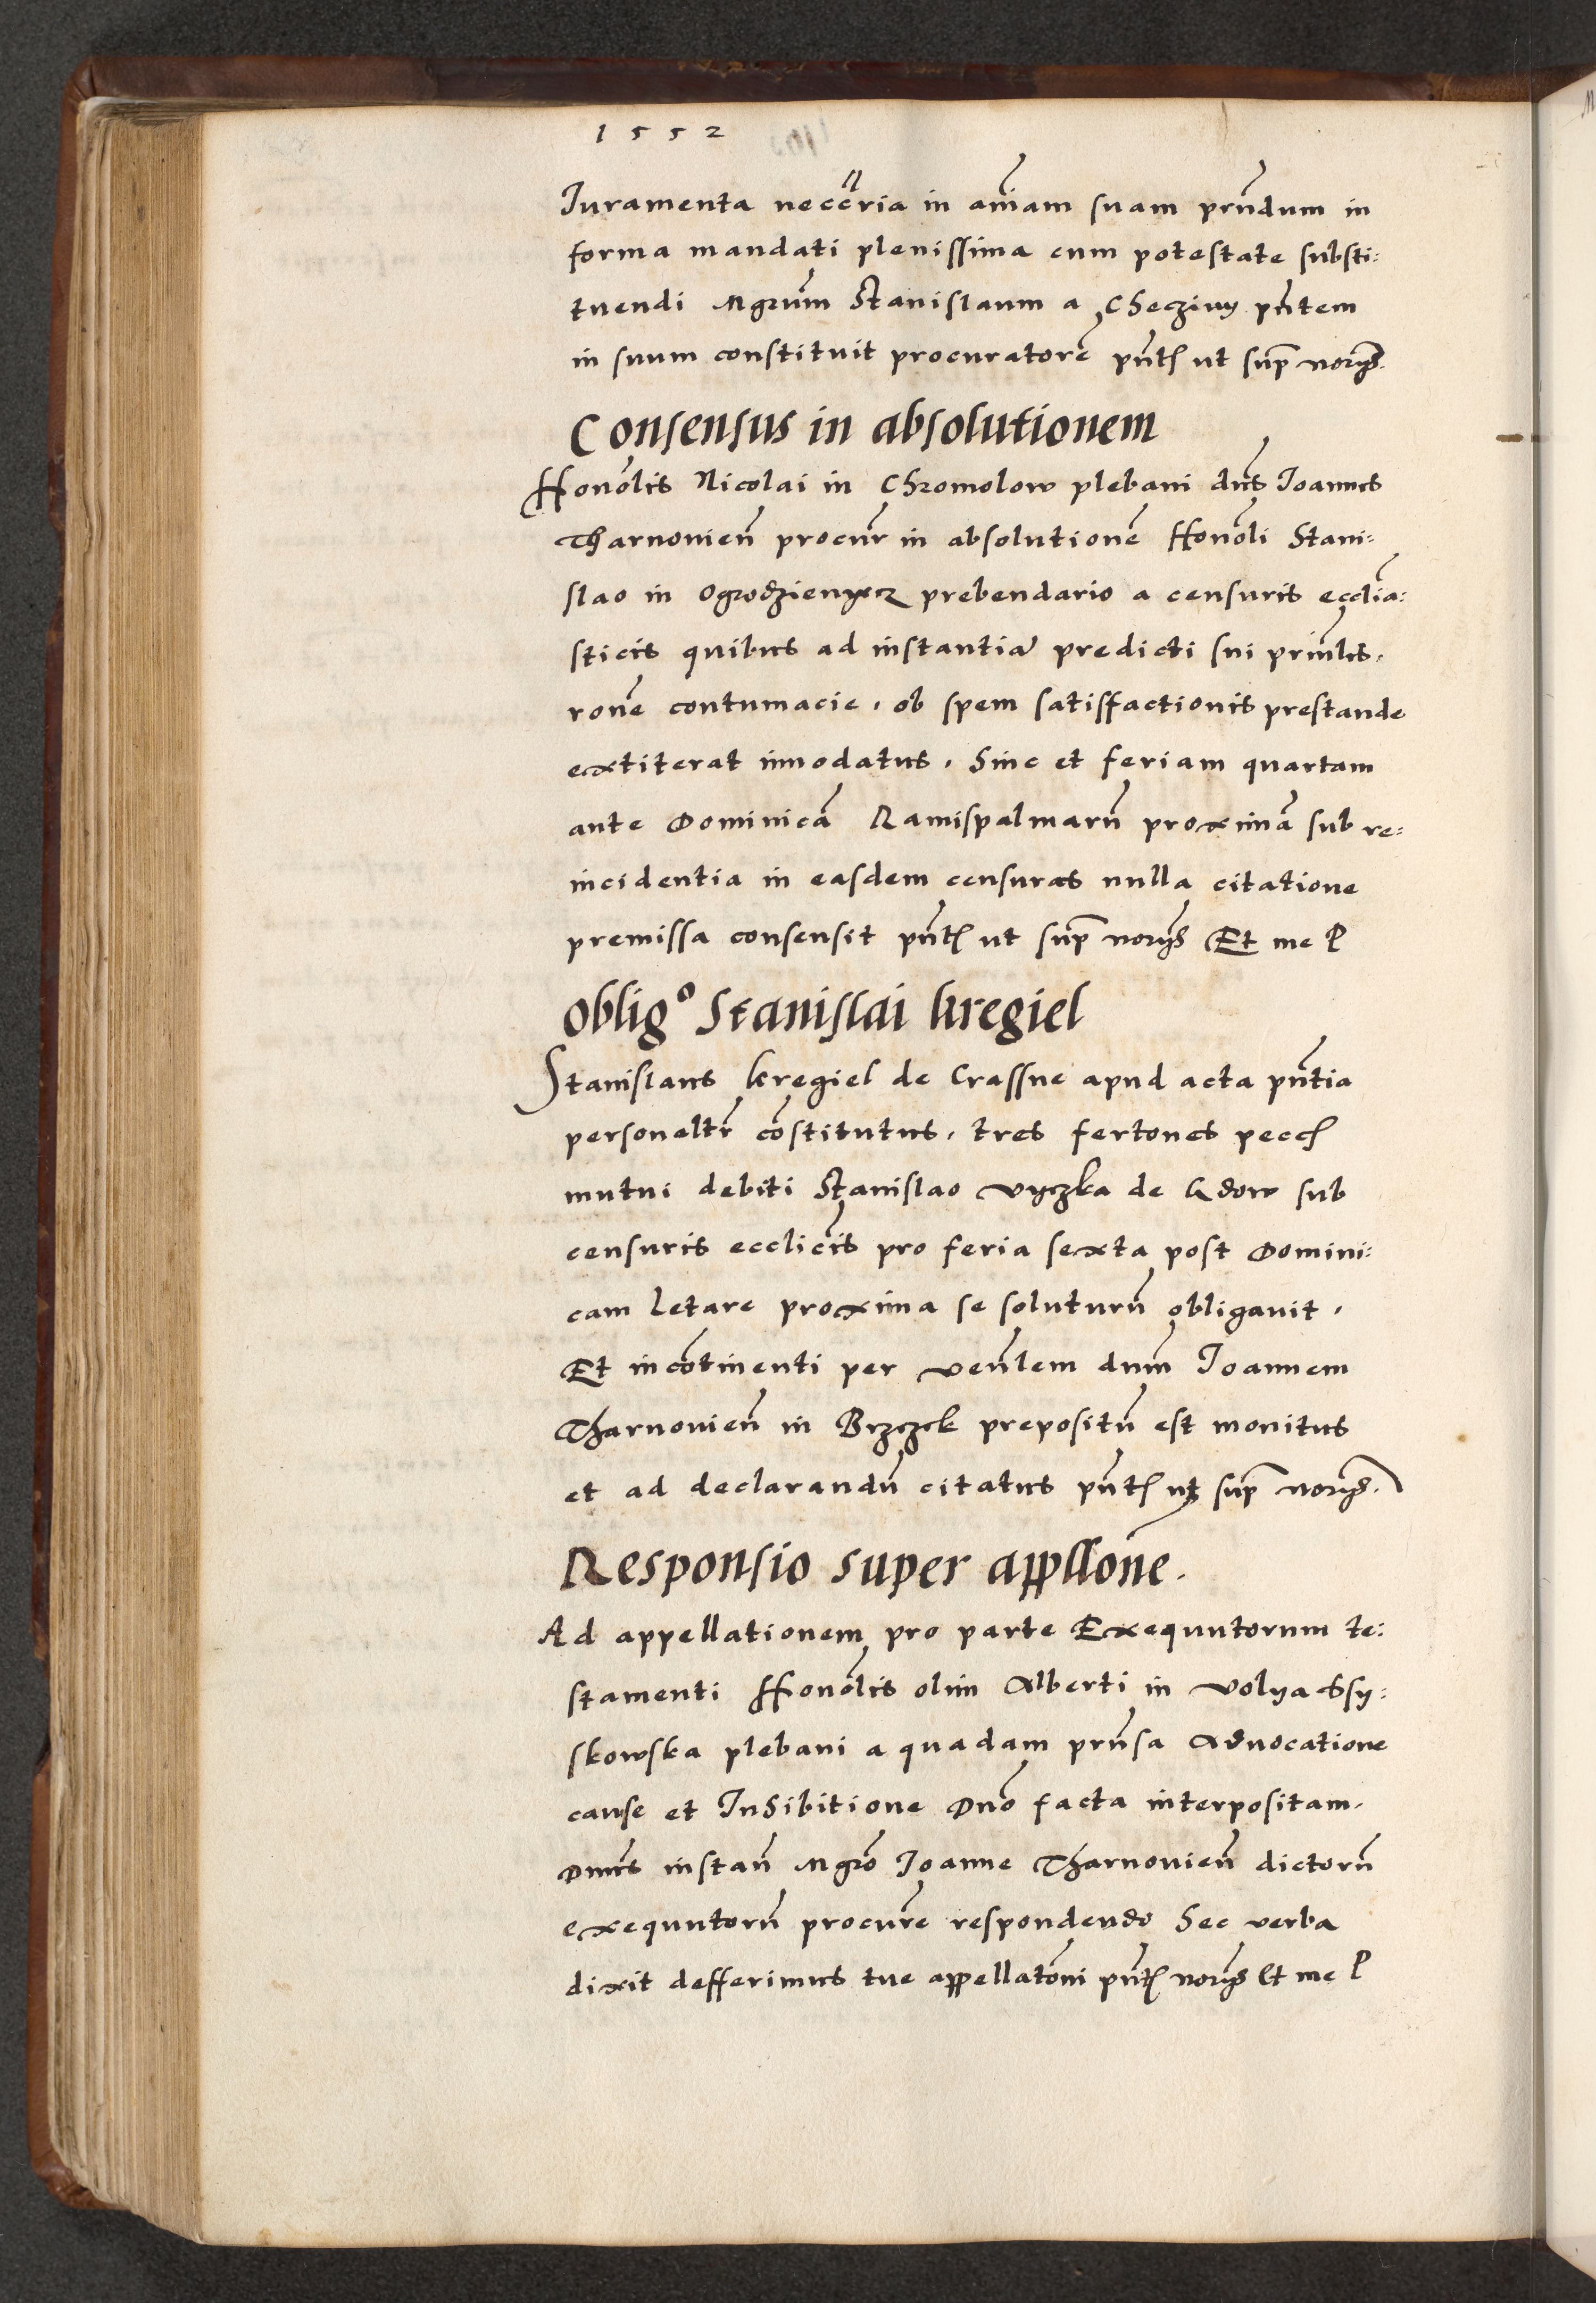 1552
Iuramenta necc̃ria in aĩam suam prñdum in
forma mandati plenissima cum potestate substi:
tuendi Mgrũm Stanislaum a Checziny pñtem
in suum constituit procuratorẽ pñtꝭ ut sup̃ norijs.
Consensus in absolutionem
Honõlis Nicolai in Chromolow plebani dñs Ioannes
Tharnovieñ procur̃ in absolutionẽ Honõli Stani:
slao in Ogrodzienyecz prebendario a censuris ecclĩa:
sticis quibus ad instantiã predicti sui prin̄lis.
rõne contumacie. ob spem satisffactionis prestande
extiterat innodatus. Hinc et feriam quartam
ante Dominicã Ramispalmarũ proximã sub re:
incidentia in easdem censuras nulla citatione
premissa consensit pñtꝭ ut sup̃ norijs Et me P
Obligº Stanislai kregiel
Stanislaus kregiel de Crassne apud acta pñtia
personaltr̃ cõstitutus. tres fertones pecc̃
mutui debiti Stanislao vyczka de Gdow sub
censuris ecclicĩs pro feria sexta post Domini:
cam Letare proxima se soluturũ obligavit.
Et incõtinenti per veñlem dnm̃ Ioannem
Tharnovieñ in Brzezek prepositũ est monitus
et ad declarandũ citatus pñtꝭ ut sup̃ norijs.
Responsio super appllõne.
Ad appellationem pro parte Exequutorum te:
stamenti Honõlis olim Alberti in Volya Ssy:
skowska plebani a quadam prñsa Advocatione
cause et Inhibitione Dnõ facta interpositam.
Dnus instañ Mgrõ Ioanne Tharnovieñ dictorũ
exequutorũ procurẽ respondendo hec verba
dixit defferimus tue appellatõni pñtꝭ norijs Et me P